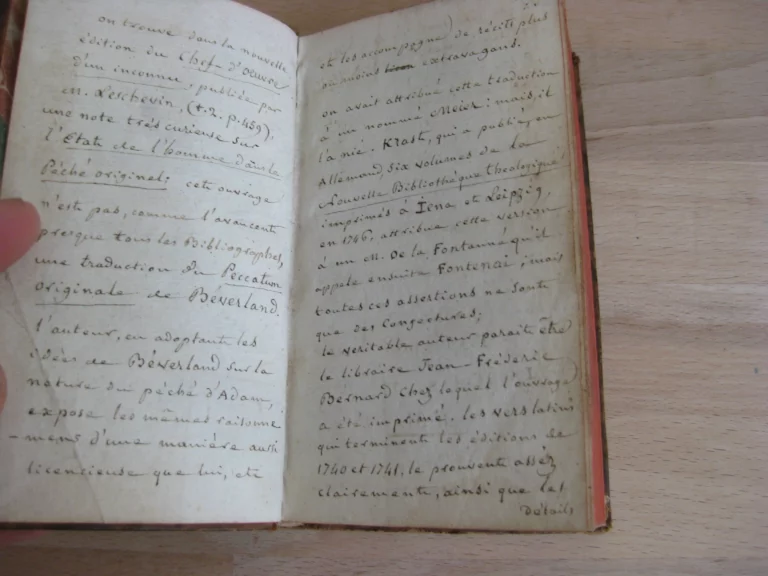 on trouve dans la nouvelle
édition du Chef-d'oeuvre
d'un inconnu, publiée par
M. Leschevin, (t. 2. p. 459).
une note très curieuse sur
l'Etat de l'homme dans le
Péché originel; cet ouvrage
n'est pas, comme l'avancent
presque tous les Bibliographes,
une traduction du Peccatum
originale de Béverland.
l'auteur, en adoptant les
idées de Béverland sur la
nature du péché d'Adam,
expose les mêmes raisonne
-mens d'une manière aussi
licencieuse que lui, etc
et les accompagne de récits plus
ou moins extravagans.
on avait attribué cette traduction
à un nommé Meier; mais, il
l'a nié. Kraft, qui a publié, en
Allemand, six volumes de la
Nouvelle Bibliothèque théologique
imprimés à Iena et Leipzig,
en 1746, attribue cette version
à un M. De la Fontanné qu'il
appele ensuite Fontenai; mais
toutes ces assertions ne sont
que des Conjectures;
le veritable auteur parait être
le libraire Jean-Fréderic
Bernard chez lequel l'ouvrage
a été imprimé. les vers latins
qui terminent les éditions de
1740 et 1741. le prouvent assez
clairement, ainsi que les
Détails